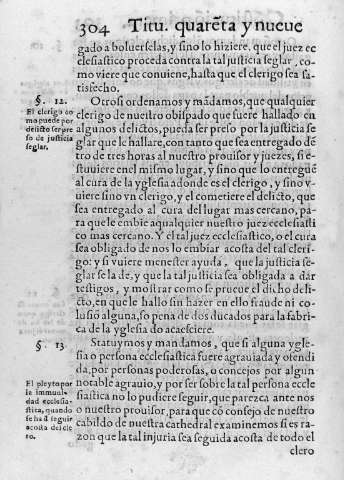 304 Titu. quarẽta y nueue
gado a boluerselas, y sino lo hiziere, que el juez ec
clesiastico proceda contra la tal justicia seglar, co
mo viere que conuiene, hasta que el clerigo sea sa-
tisfecho.
§. 12.
El clerigo co
mo puede por
delicto ser pre
so de justicia
seglar.
Otrosi ordenamos y mãdamos, que qualquier
clerigo de nuestro obispado que fuere hallado en
algunos delictos, pueda ser preso por la justicia se
glar que le hallare, con tanto que sea entregado dẽ
tro de tres horas al nuestro prouisor y juezes, si e-
stuuiere en el mismo lugar, y sino que lo entregué
al cura de la yglesia adonde es el clerigo, y sino v-
uiere sino vn clerigo, y el cometiere el delicto, que
sea entregado al cura del lugar mas cercano, pa-
ra que le embie a qualquier nuestro juez ecclesiasti
co mas cercano. Y el tal juez ecclesiastico, o el cura
sea obligado de nos lo embiar acosta del tal cleri-
go: y si vuiere menester ayuda, que la justicia se-
glar se la de, y que la tal justicia sea obligada a dar
testigos, y mostrar como se prueue el dicho deli-
cto, en que le hallo sin hazer en ello fraude ni co-
lusió alguna, so pena de dos ducados para la fabri-
ca de la yglesia do acaesciere.
§. 13.
El pleyto por
la immuni-
dad ecclesia-
stica, quando
se ha d̃ seguir
acosta del cle
ro.
Statuymos y mandamos, que si alguna ygle
sia o persona ecclesiastica fuere agrauiada y ofendi
da, por personas poderosas, o concejos por algun
notable agrauio, y por ser sobre la tal persona eccle
siastica no lo pudiere seguir, que parezca ante nos
o nuestro prouisor, para que có consejo de nuestro
cabildo de nuestra cathedral examinemos si es ra-
zon que la tal injuria sea seguida acosta de todo el
clero